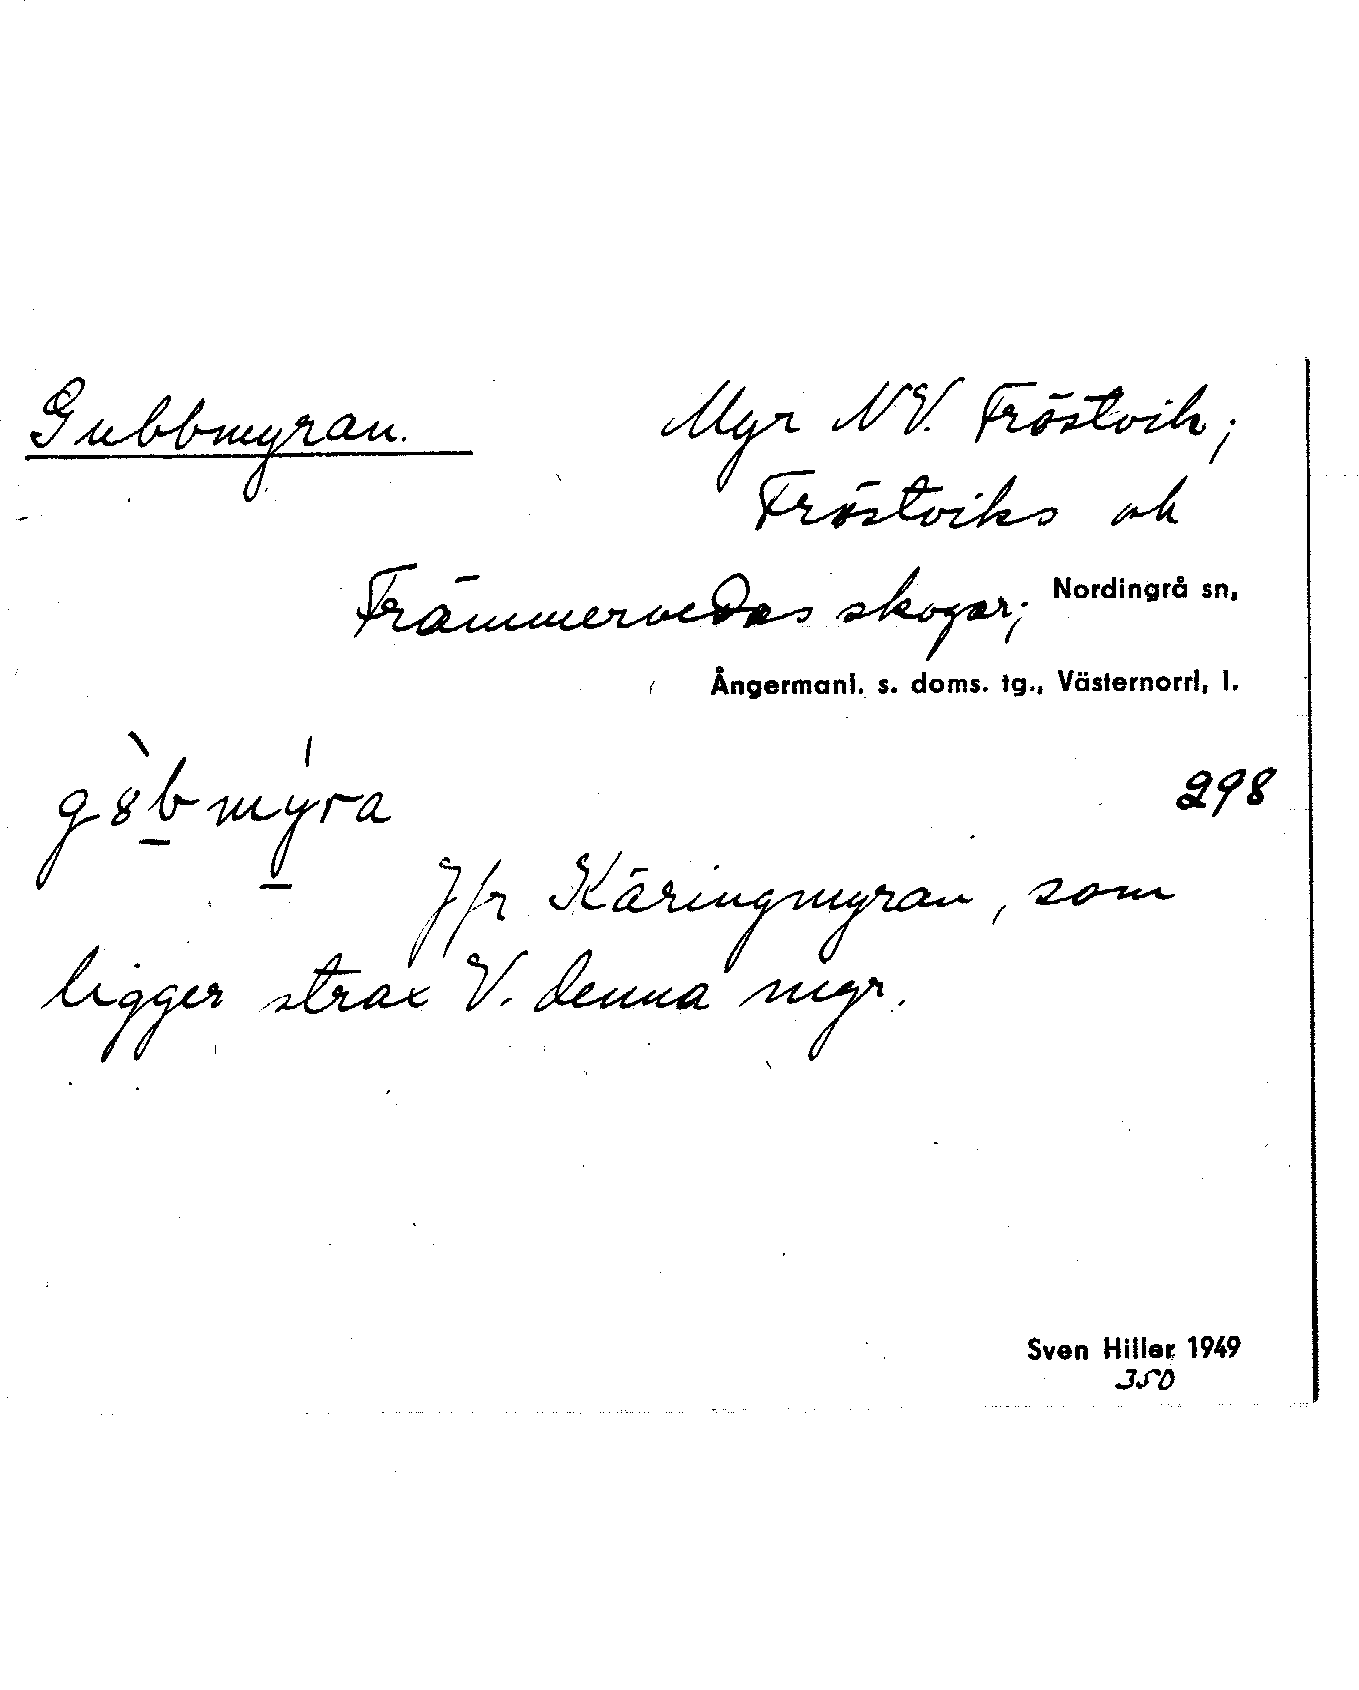 Gubbmyran.
Myr NV. Fröstvik;
Fröstviks och
Främmervedas skogar;
Nordingrå sn,
Ångermanl. s. doms. tg., Västernorrl. l.
g8̀bmýra
298
Jfr Käringmyran, som
ligger strax V. denna myr.
Sven Hiller 1949
350